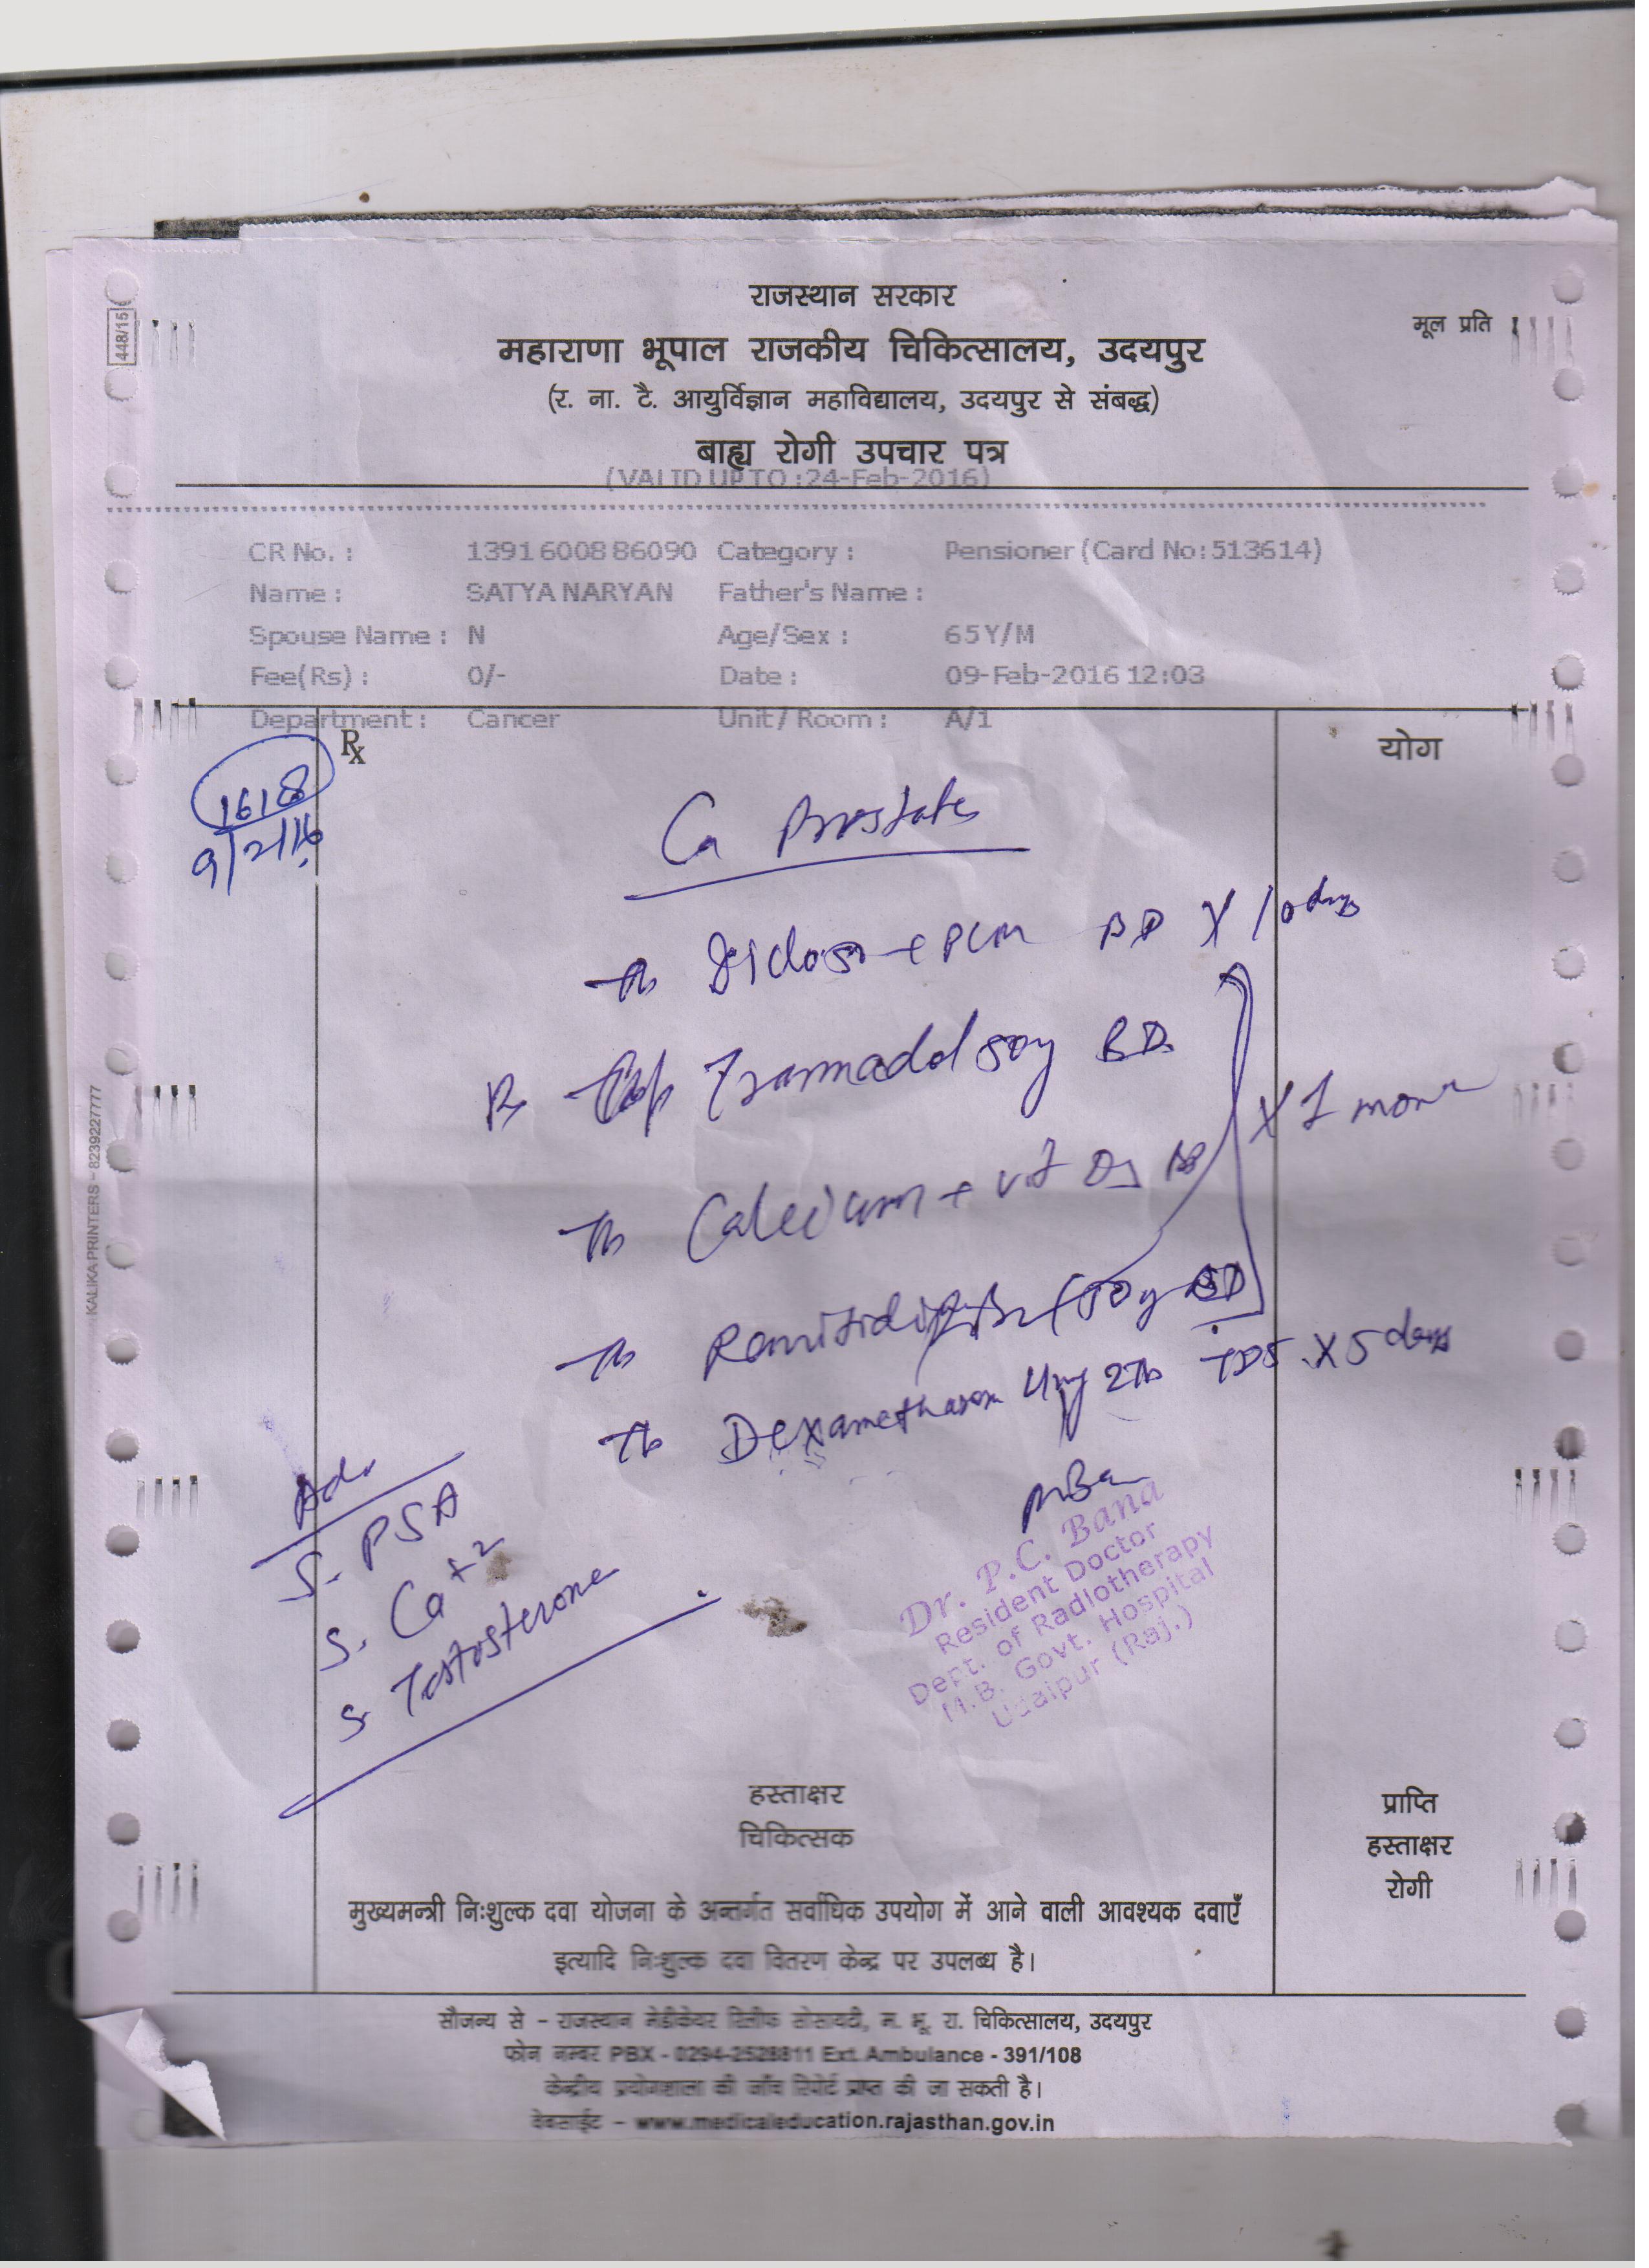 448/15
राजस्थान सरकार
मूल प्रति
महाराणा भूपाल राजकीय चिकित्सालय, उदयपुर
(र. ना. टै. आयुर्विज्ञान महाविद्यालय, उदयपुर से संबद्ध)
बाह्य रोगी उपचार पत्र
(VALID UP TO :24-Feb-2016)
CR No. : 139160088 6090 Category : Pensioner (Card No:513614)
Name : SATYA NARYAN Father's Name :
Spouse Name : N Age/Sex : 65Y/M
Fee(Rs) : 0/- Date : 09-Feb-2016 12:03
Department : Cancer Unit / Room : A/1
Rx
योग
1618
9/2/16
Ca Prostate
Tb Diclo + PCM BD X 10 days
Rx Cap Tramadol 50mg BD
X 1 mon
Tb Calcium + vit D3 BD
Tb Ranitidine 150mg BD
Tb Dexamethason 4mg 2Tb TDS X 5 days
Adv
S. PSA
S. Ca+2
S. Testosterone
Dr. P.C. Bana
Resident Doctor
Dept. of Radiotherapy
M.B. Govt. Hospital
Udaipur (Raj.)
हस्ताक्षर
चिकित्सक
प्राप्ति
हस्ताक्षर
रोगी
मुख्यमन्त्री निःशुल्क दवा योजना के अन्तर्गत सर्वाधिक उपयोग में आने वाली आवश्यक दवाएँ
इत्यादि निःशुल्क दवा वितरण केन्द्र पर उपलब्ध है।
सौजन्य से - राजस्थान मेडीकेयर रिलीफ सोसायटी, म. भू. रा. चिकित्सालय, उदयपुर
फोन नम्बर PBX - 0294-2528811 Ext. Ambulance - 391/108
केन्द्रीय प्रयोगशाला की जाँच रिपोर्ट प्राप्त की जा सकती है।
वेबसाईट - www.medicaleducation.rajasthan.gov.in
KALIKA PRINTERS - 8239227777